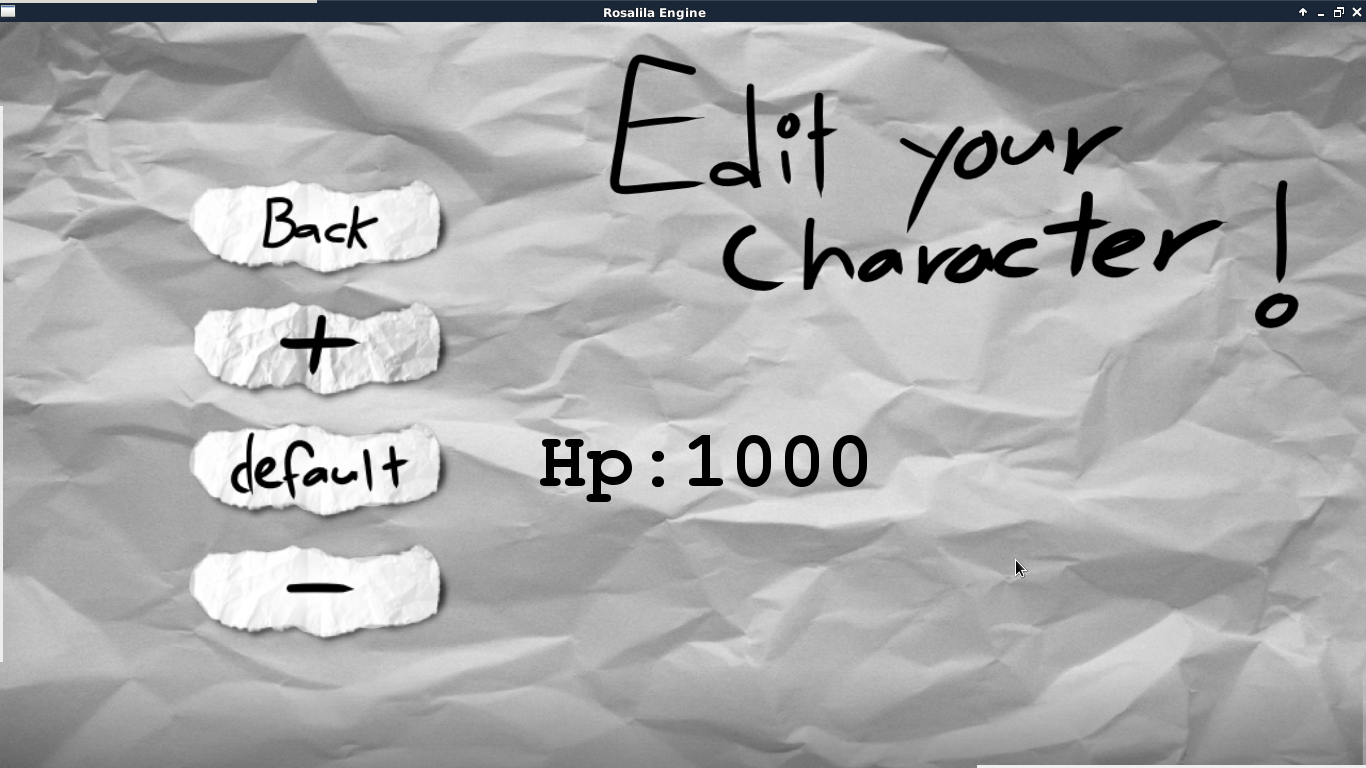 Rosalila Engine
Edit your
character!
Back
+
default
Hp:1000
-